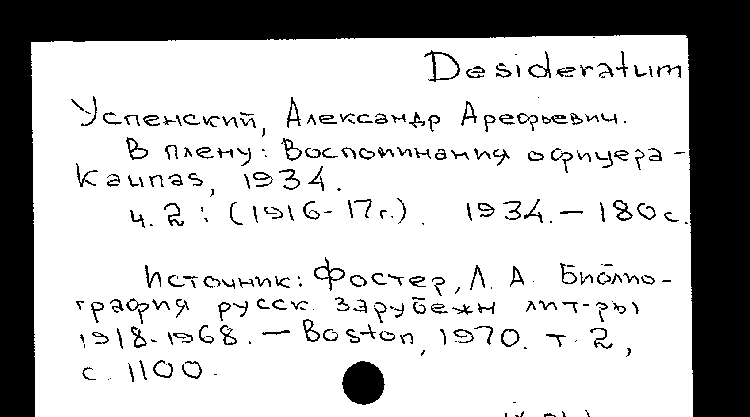 Desideratum
Успенский, Александр Арефьевич.
В плену: Воспоминания офицера -
Kaunas, 1934.
ч. 2 : (1916-17г.). 1934. – 180 с.
Источник: Фостер, Л. А. Библио-
графия русск. зарубежн лит-ры
1918-1968. – Boston, 1970. т. 2,
с. 1100.